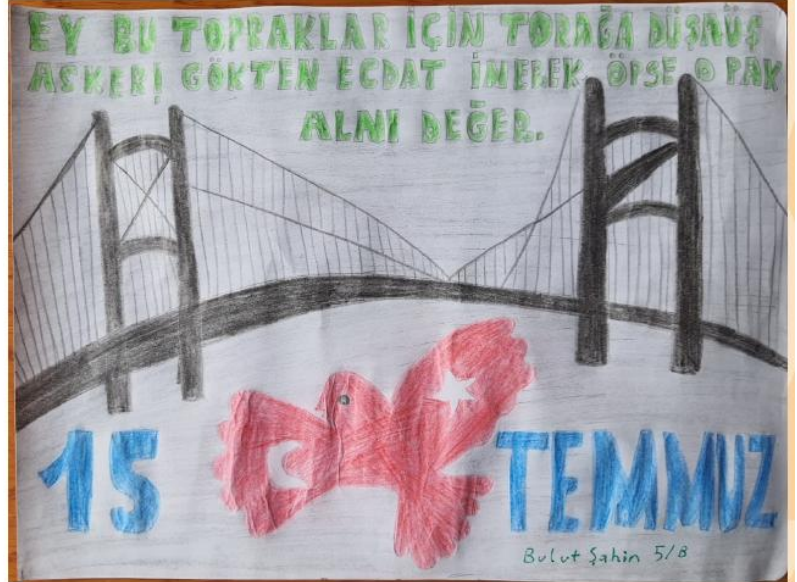 EY BU TOPRAKLAR İÇİN TORAĞA DÜŞMÜŞ
ASKER! GÖKTEN ECDAT İNEREK ÖPSE O PAK
ALNI DEĞER.
15 TEMMUZ
Bulut Şahin 5/B